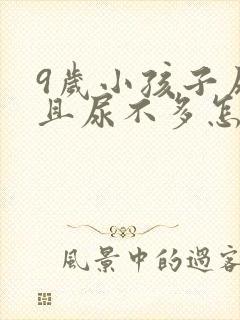 9歲小孩子尿
且尿不多怎
風景中的過客